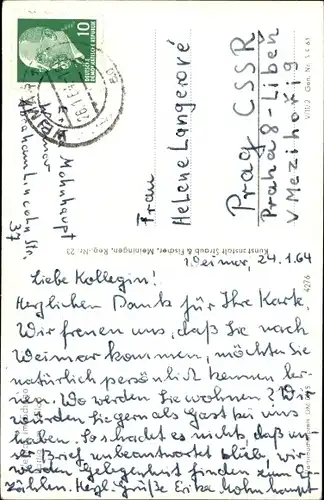 10
DEUTSCHE
DEMOKRATISCHE REPUBLIK
WEIMAR
E. Mohnhaupt
Weimar
Abraham Lincoln Str.
37
Frau
Helene Langerové
Prag CSSR
Praha 8 - Libeň
V Mezihoří
Kunstanstalt Straub & Fischer, Meiningen, Reg.-Nr. 23
4276
Weimar, 24.1.64
Liebe Kollegin!
Herzlichen Dank für Ihre Karte.
Wir freuen uns, daß Sie nach
Weimar kommen, möchten Sie
natürlich persönlich kennen ler-
nen. Wo werden Sie wohnen? Wir
würden Sie gern als Gast bei uns
haben. So schadet es nichts, daß un-
ser Brief unbeantwortet blieb, wir
werden Gelegenheit finden zum Er-
zählen. Herzl. Grüße Erika Mohnhaupt